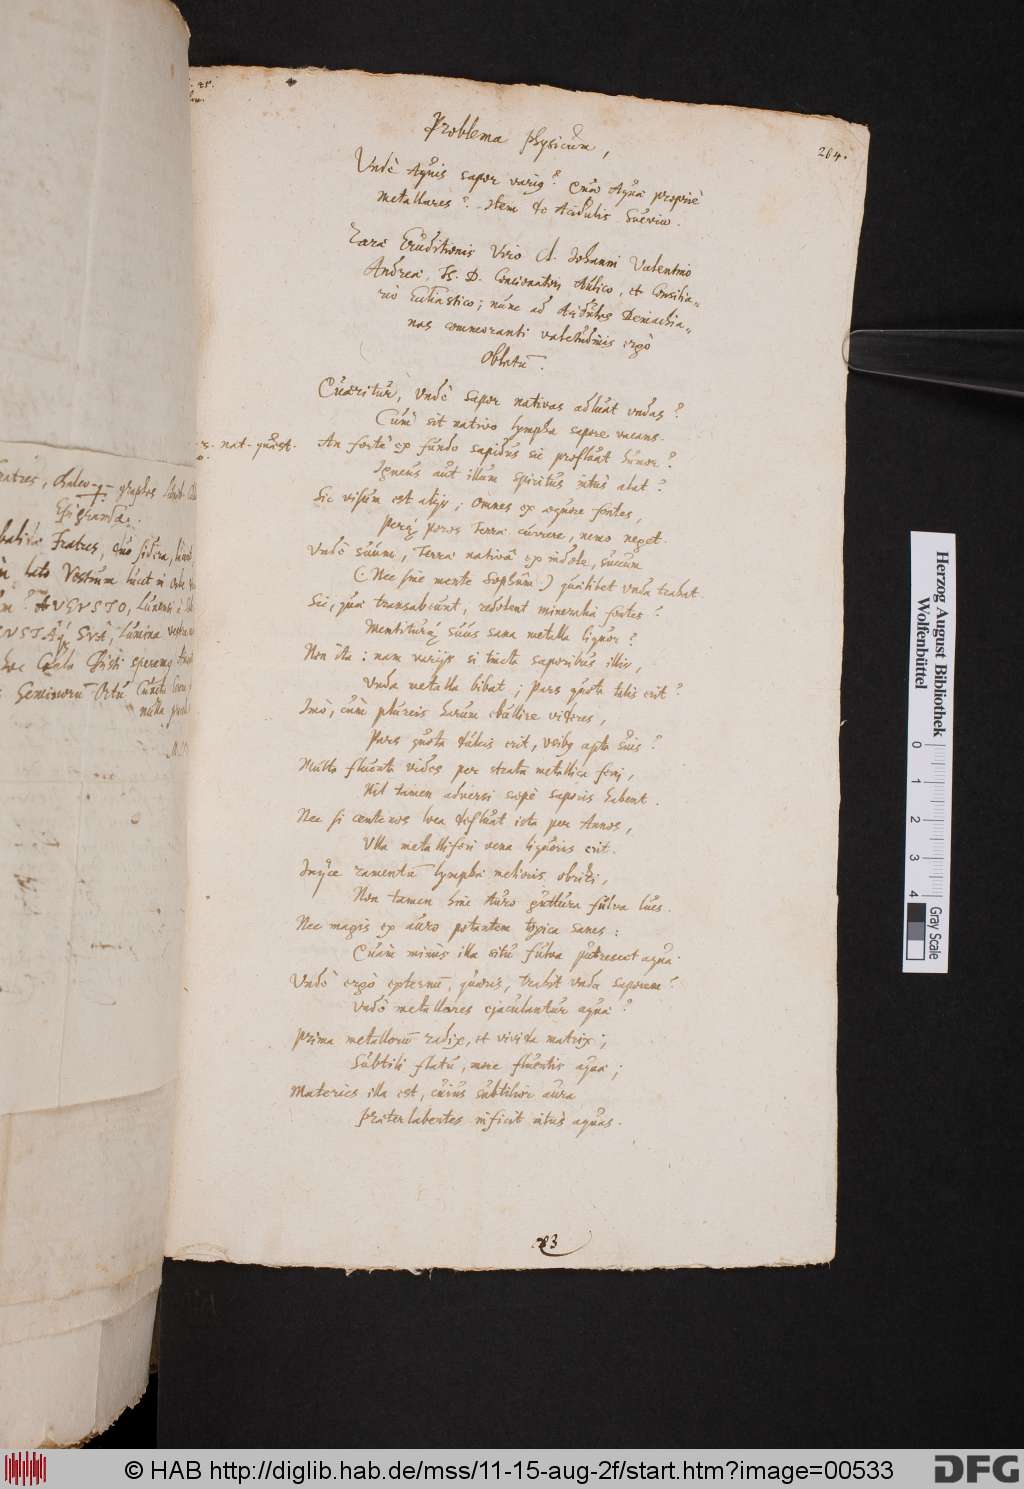 264.
Problema physicum,
Undè Aquis sapor variꝰ? Cur Aquæ propriè
Metallares? Item de Acidulis Sueviæ.
Raræ Eruditionis Viro Cl. Johanni Valentino
Andreæ, SS. D. Concionatori Aulico, et Consilia-
rio Ecclesiastico; nunc ad Acidulas Deinachia-
nas commoranti valetudinis ergò
Oblatū.
Quæritur, undè sapor nativas adluat undas?
Cùm sit nativo lympha sapore vacans.
nat. quæst.
An fortè ex fundo sapidus sic profluat humor?
Igneus aut illum spiritus intùs alat?
Sic visum est alijs; omnes ex æquore fontes,
Perq́ poros Terræ currere, nemo neget.
Undè suum, Terræ nativâ ex indole, succum
(Nec sine mente Sophûm) quælibet unda trahat.
Sic, quà transabeunt, redolent mineralia fontes?
Mentiturq́ suus sana metalla liquor?
Non ita: nam varijs si tincta saporibus illic,
Unda metalla bibat; pars quota talis erit?
Imò, cùm plureis harum ebullire videres,
Pars quota dulcis erit, usibꝰ apta suis?
Multa fluenta vides per strata metallica ferri,
Nil tamen adversi sæpè saporis habent.
Nec si centenos loca defluat ista per Annos,
Ulla metalliferi vena liquoris erit.
Injice ramentū lymphæ melioris obrizi,
Non tamen hinc Auro guttura fulva lues.
Nec magis ex auro potantem toxica sanes:
Quàm minùs illa situ fulva putrescet aqua.
Undè ergò externū, quæris, trahit unda saporem?
Undè metallares ejaculantur aquæ?
Prima metallorū radix, et vivida matrix;
Subtili flatu, more fluentis aquæ;
Materies illa est, cuius subtilior aura
Præterlabentes inficit intùs aquas.
83
fratres, Chalco-graphos
Fratres, duo sidera,
AUGUSTO,
lumina
Geminorū Ortu Cuncta
nulla
Herzog August Bibliothek
Wolfenbüttel
0 1 2 3 4
Gray Scale
© HAB http://diglib.hab.de/mss/11-15-aug-2f/start.htm?image=00533
DFG